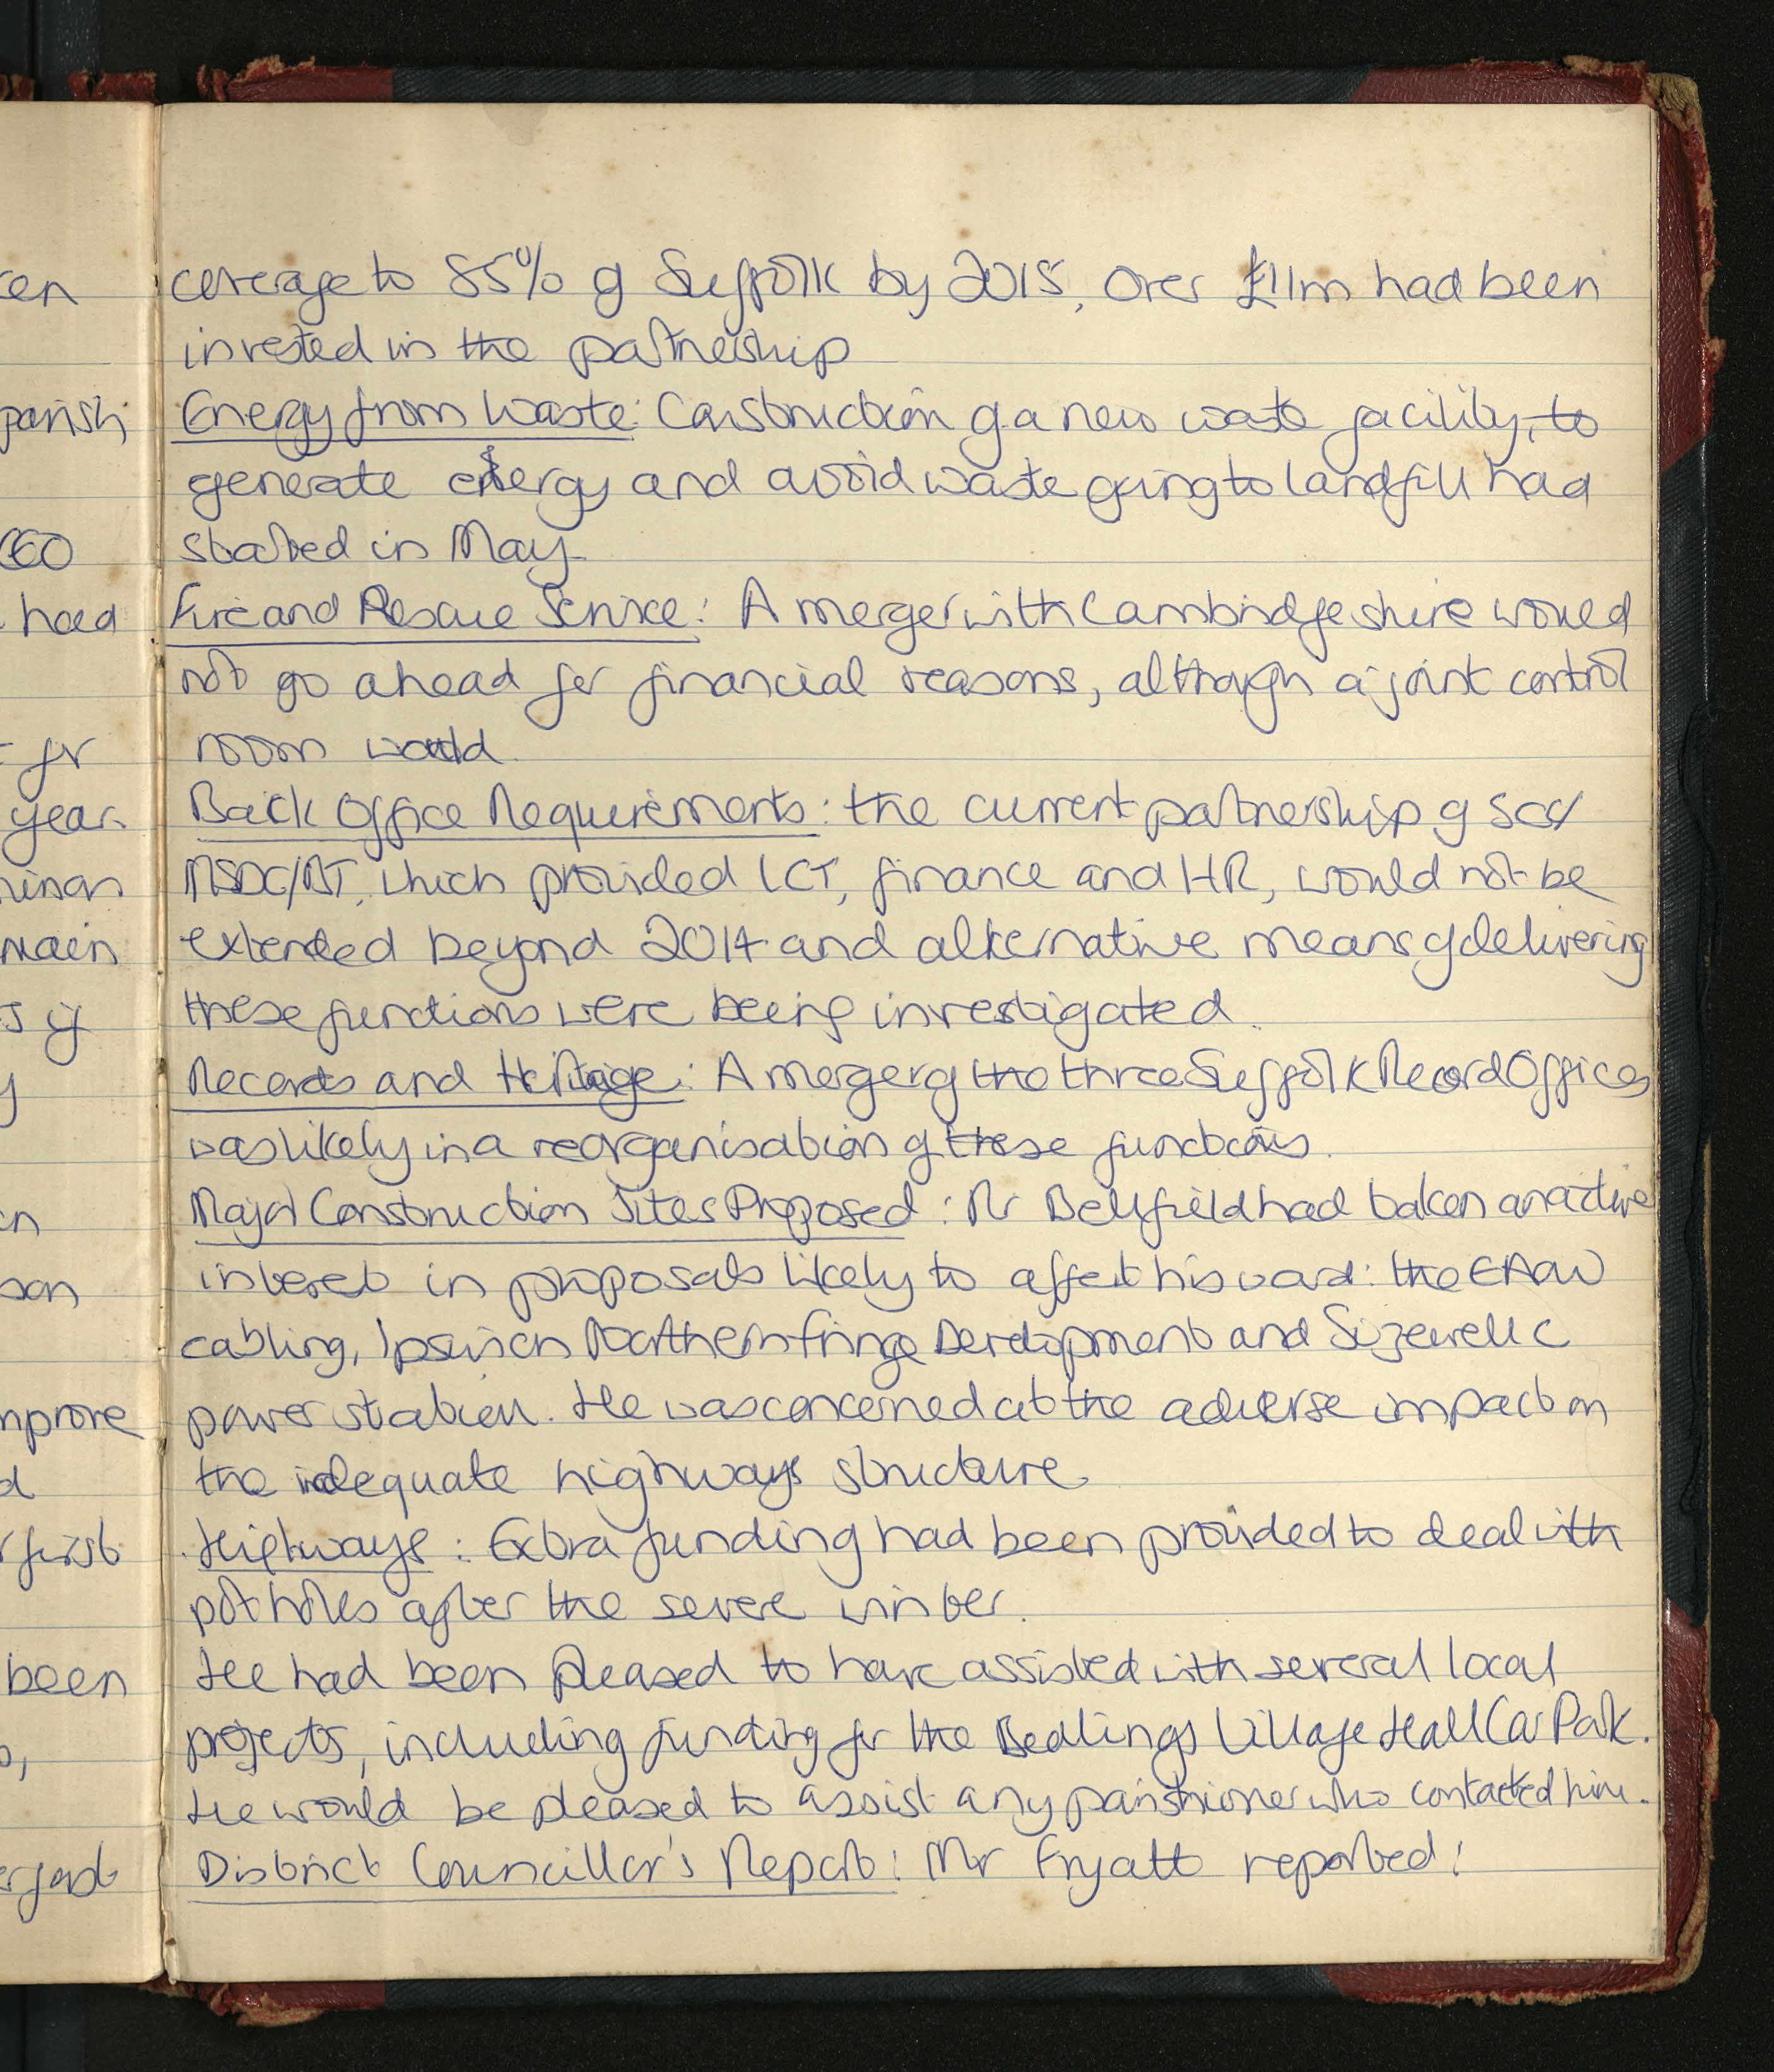 coverage to 85% of Suffolk by 2015. Over £11m had been
invested in the partnership
Energy from Waste: Construction of a new waste facility, to
generate energy and avoid waste going to landfill had
started in May.
Fire and Rescue Service: A merger with Cambridgeshire would
not go ahead for financial reasons, although a joint control
room would.
Back Office Requirements: the current partnership of SCC/
MSDC/BT, which provided ICT, finance and HR, would not be
extended beyond 2014 and alternative means of delivering
these functions were being investigated.
Records and Heritage: A merger of the three Suffolk Record Offices
was likely in a reorganisation of these functions.
Major Construction Sites Proposed: Mr Bellfield had taken an active
interest in proposals likely to affect his ward: the EAOW
cabling, Ipswich Northern Fringe Development and Sizewell C
power station. He was concerned at the adverse impact on
the inadequate highways structure
Highways: Extra funding had been provided to deal with
potholes after the severe winter.
He had been pleased to have assisted with several local
projects, including funding for the Bedlings Village Hall Car Park.
He would be pleased to assist any parishioner who contacted him.
District Councillor's Report: Mr Fryatt reported:
en
parish
CEO
had
for
year.
main
if
y
son
improve
d
first
been